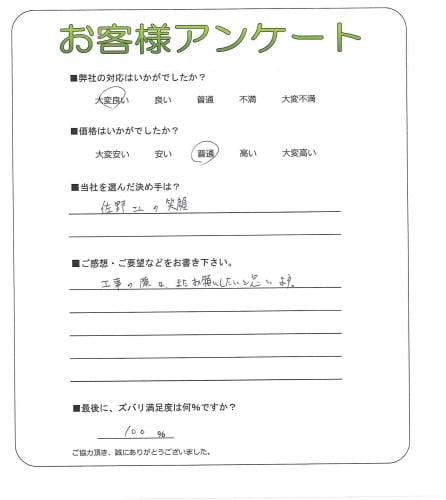 お客様アンケート
■弊社の対応はいかがでしたか？
大変良い 良い 普通 不満 大変不満
■価格はいかがでしたか？
大変安い 安い 普通 高い 大変高い
■当社を選んだ決め手は？
佐野さんの笑顔
■ご感想・ご要望などをお書き下さい。
工事の際は またお願いしたいと思います。
■最後に、ズバリ満足度は何%ですか？
100 %
ご協力頂き、誠にありがとうございました。